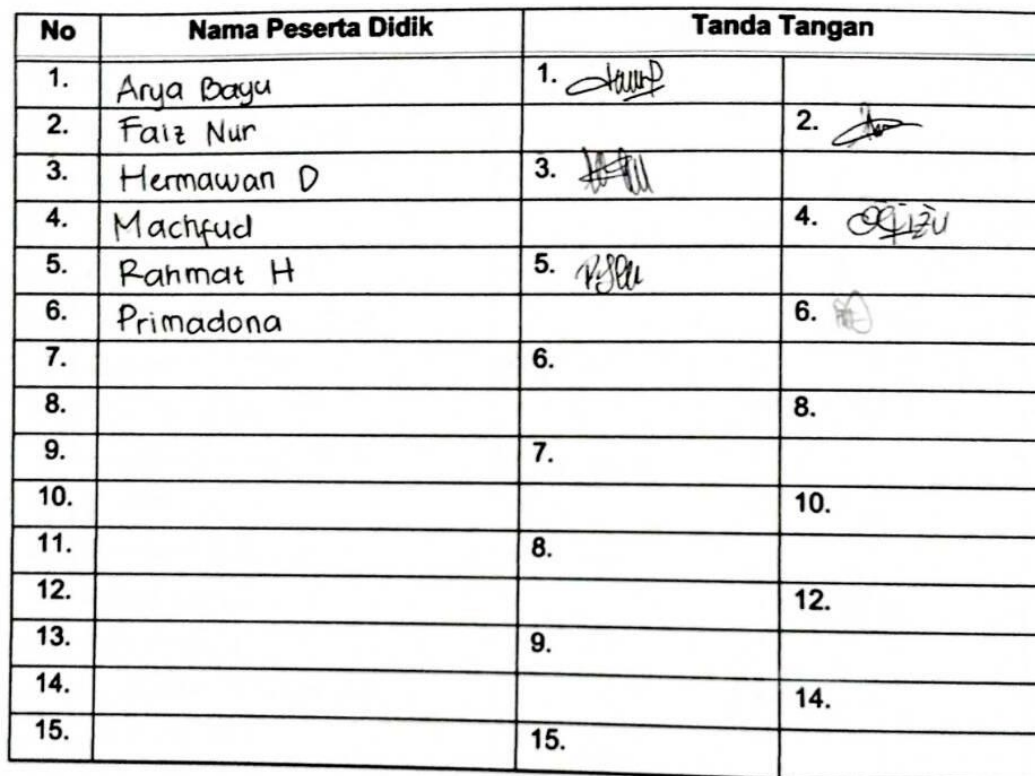 No Nama Peserta Didik Tanda Tangan
1. Arya Bayu 1.
2. Faiz Nur 2.
3. Hermawan D 3.
4. Machfud 4.
5. Rahmat H 5.
6. Primadona 6.
7. 6.
8. 8.
9. 7.
10. 10.
11. 8.
12. 12.
13. 9.
14. 14.
15. 15.